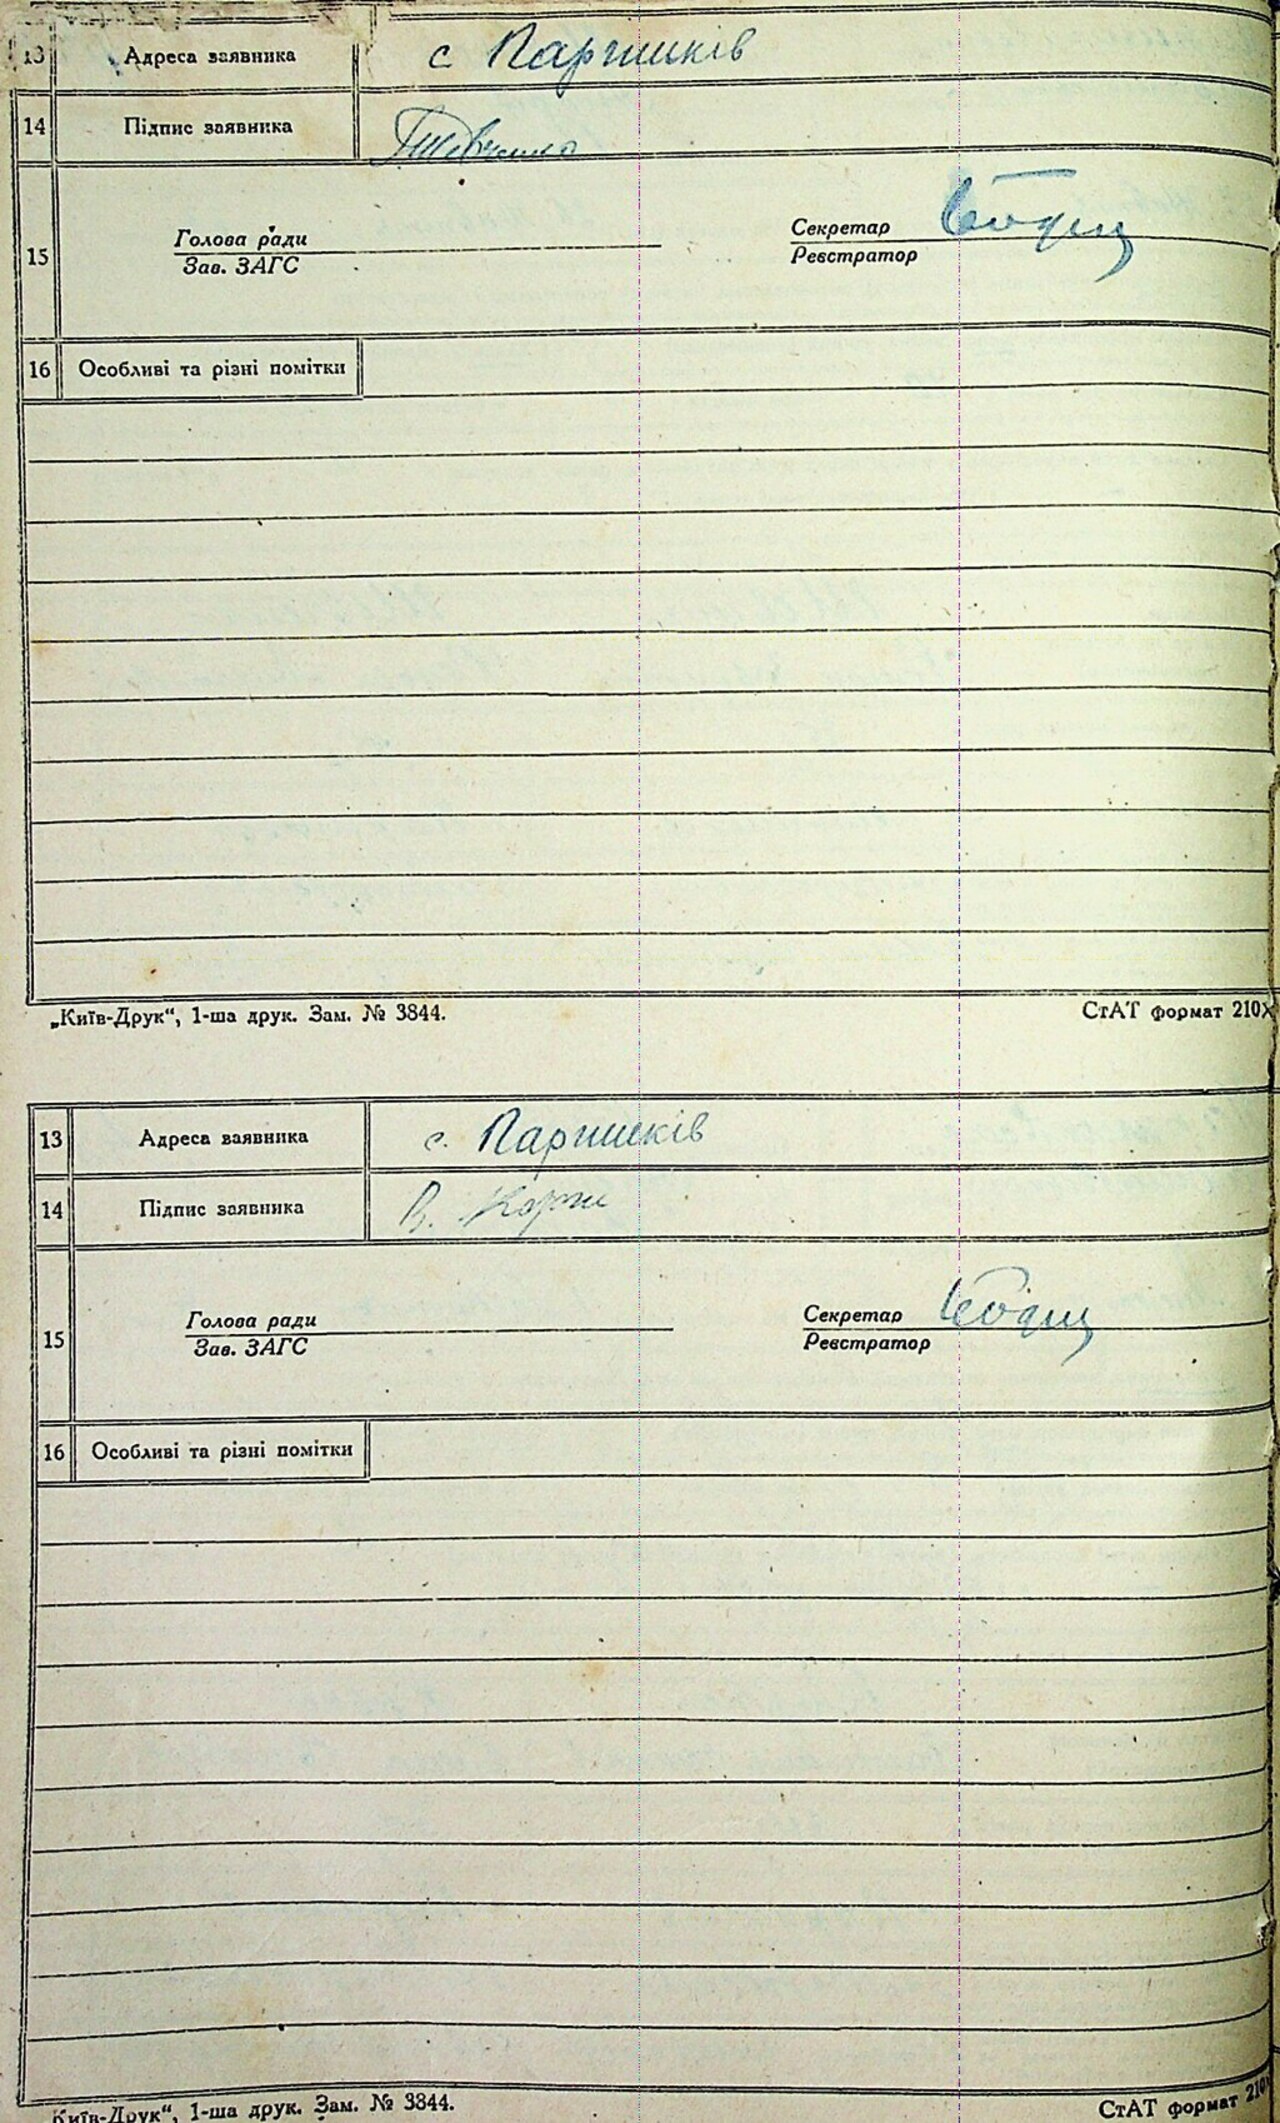 13 Адреса заявника с. Паришків
14 Підпис заявника Шевченко
Голова ради Секретар
15
Зав. ЗАГС Реєстратор
16 Особливі та різні помітки
„Київ-Друк“, 1-ша друк. Зам. № 3844. СтАТ формат 210X
13 Адреса заявника с. Паришків
14 Підпис заявника В. Корж
Голова ради Секретар
15
Зав. ЗАГС Реєстратор
16 Особливі та різні помітки
Київ-Друк“, 1-ша друк. Зам. № 3844. СтАТ формат 210